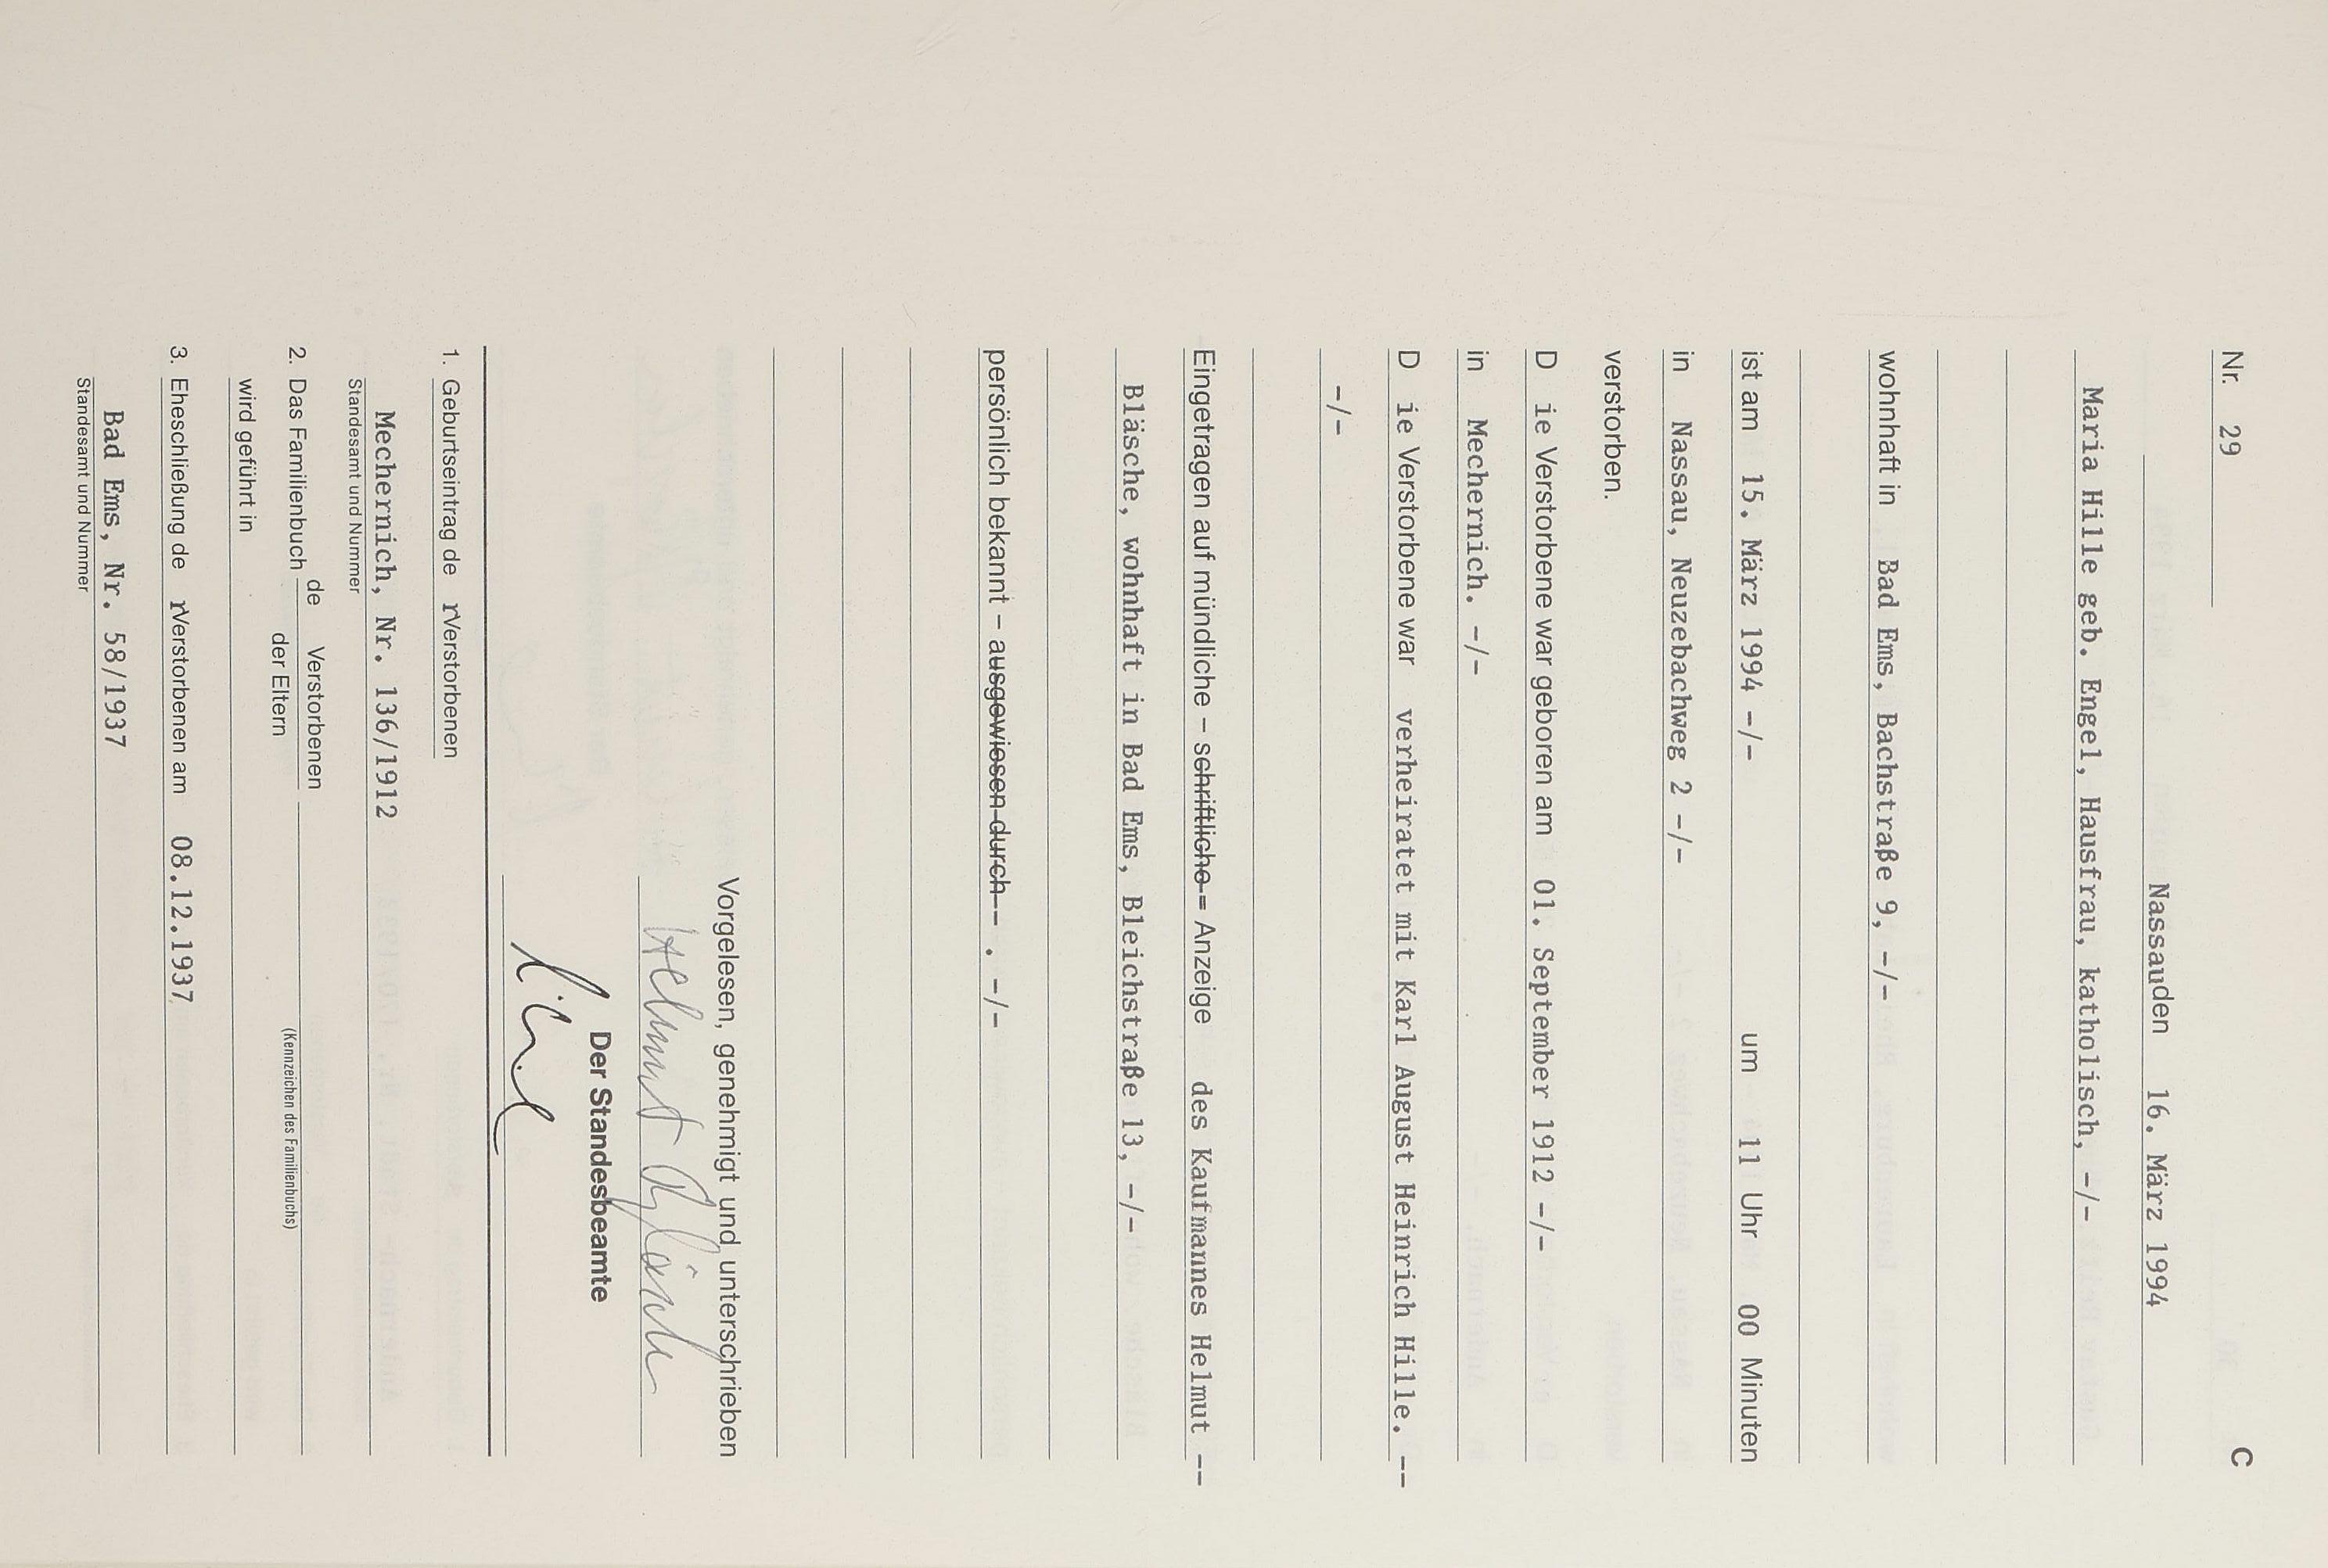 C
Nr. 29
Nassau den 16. März 1994
Maria Hille geb. Engel, Hausfrau, katholisch, -/-
wohnhaft in Bad Ems, Bachstraße 9, -/-
ist am 15. März 1994 -/- um 11 Uhr 00 Minuten
in Nassau, Neuzebachweg 2 -/-
verstorben.
D ie Verstorbene war geboren am 01. September 1912 -/-
in Mechernich. -/-
D ie Verstorbene war verheiratet mit Karl August Heinrich Hille. --
-/-
Eingetragen auf mündliche – schriftliche = Anzeige des Kaufmannes Helmut --
Bläsche, wohnhaft in Bad Ems, Bleichstraße 13, -/-
persönlich bekannt – ausgewiesen durch-- . -/-
Vorgelesen, genehmigt und unterschrieben
Helmut Bläsche
Der Standesbeamte
1. Geburtseintrag de r Verstorbenen
Mechernich, Nr. 136/1912
Standesamt und Nummer
2. Das Familienbuch de Verstorbenen
der Eltern
(Kennzeichen des Familienbuchs)
wird geführt in
3. Eheschließung de r Verstorbenen am 08.12.1937
Bad Ems, Nr. 58/1937
Standesamt und Nummer